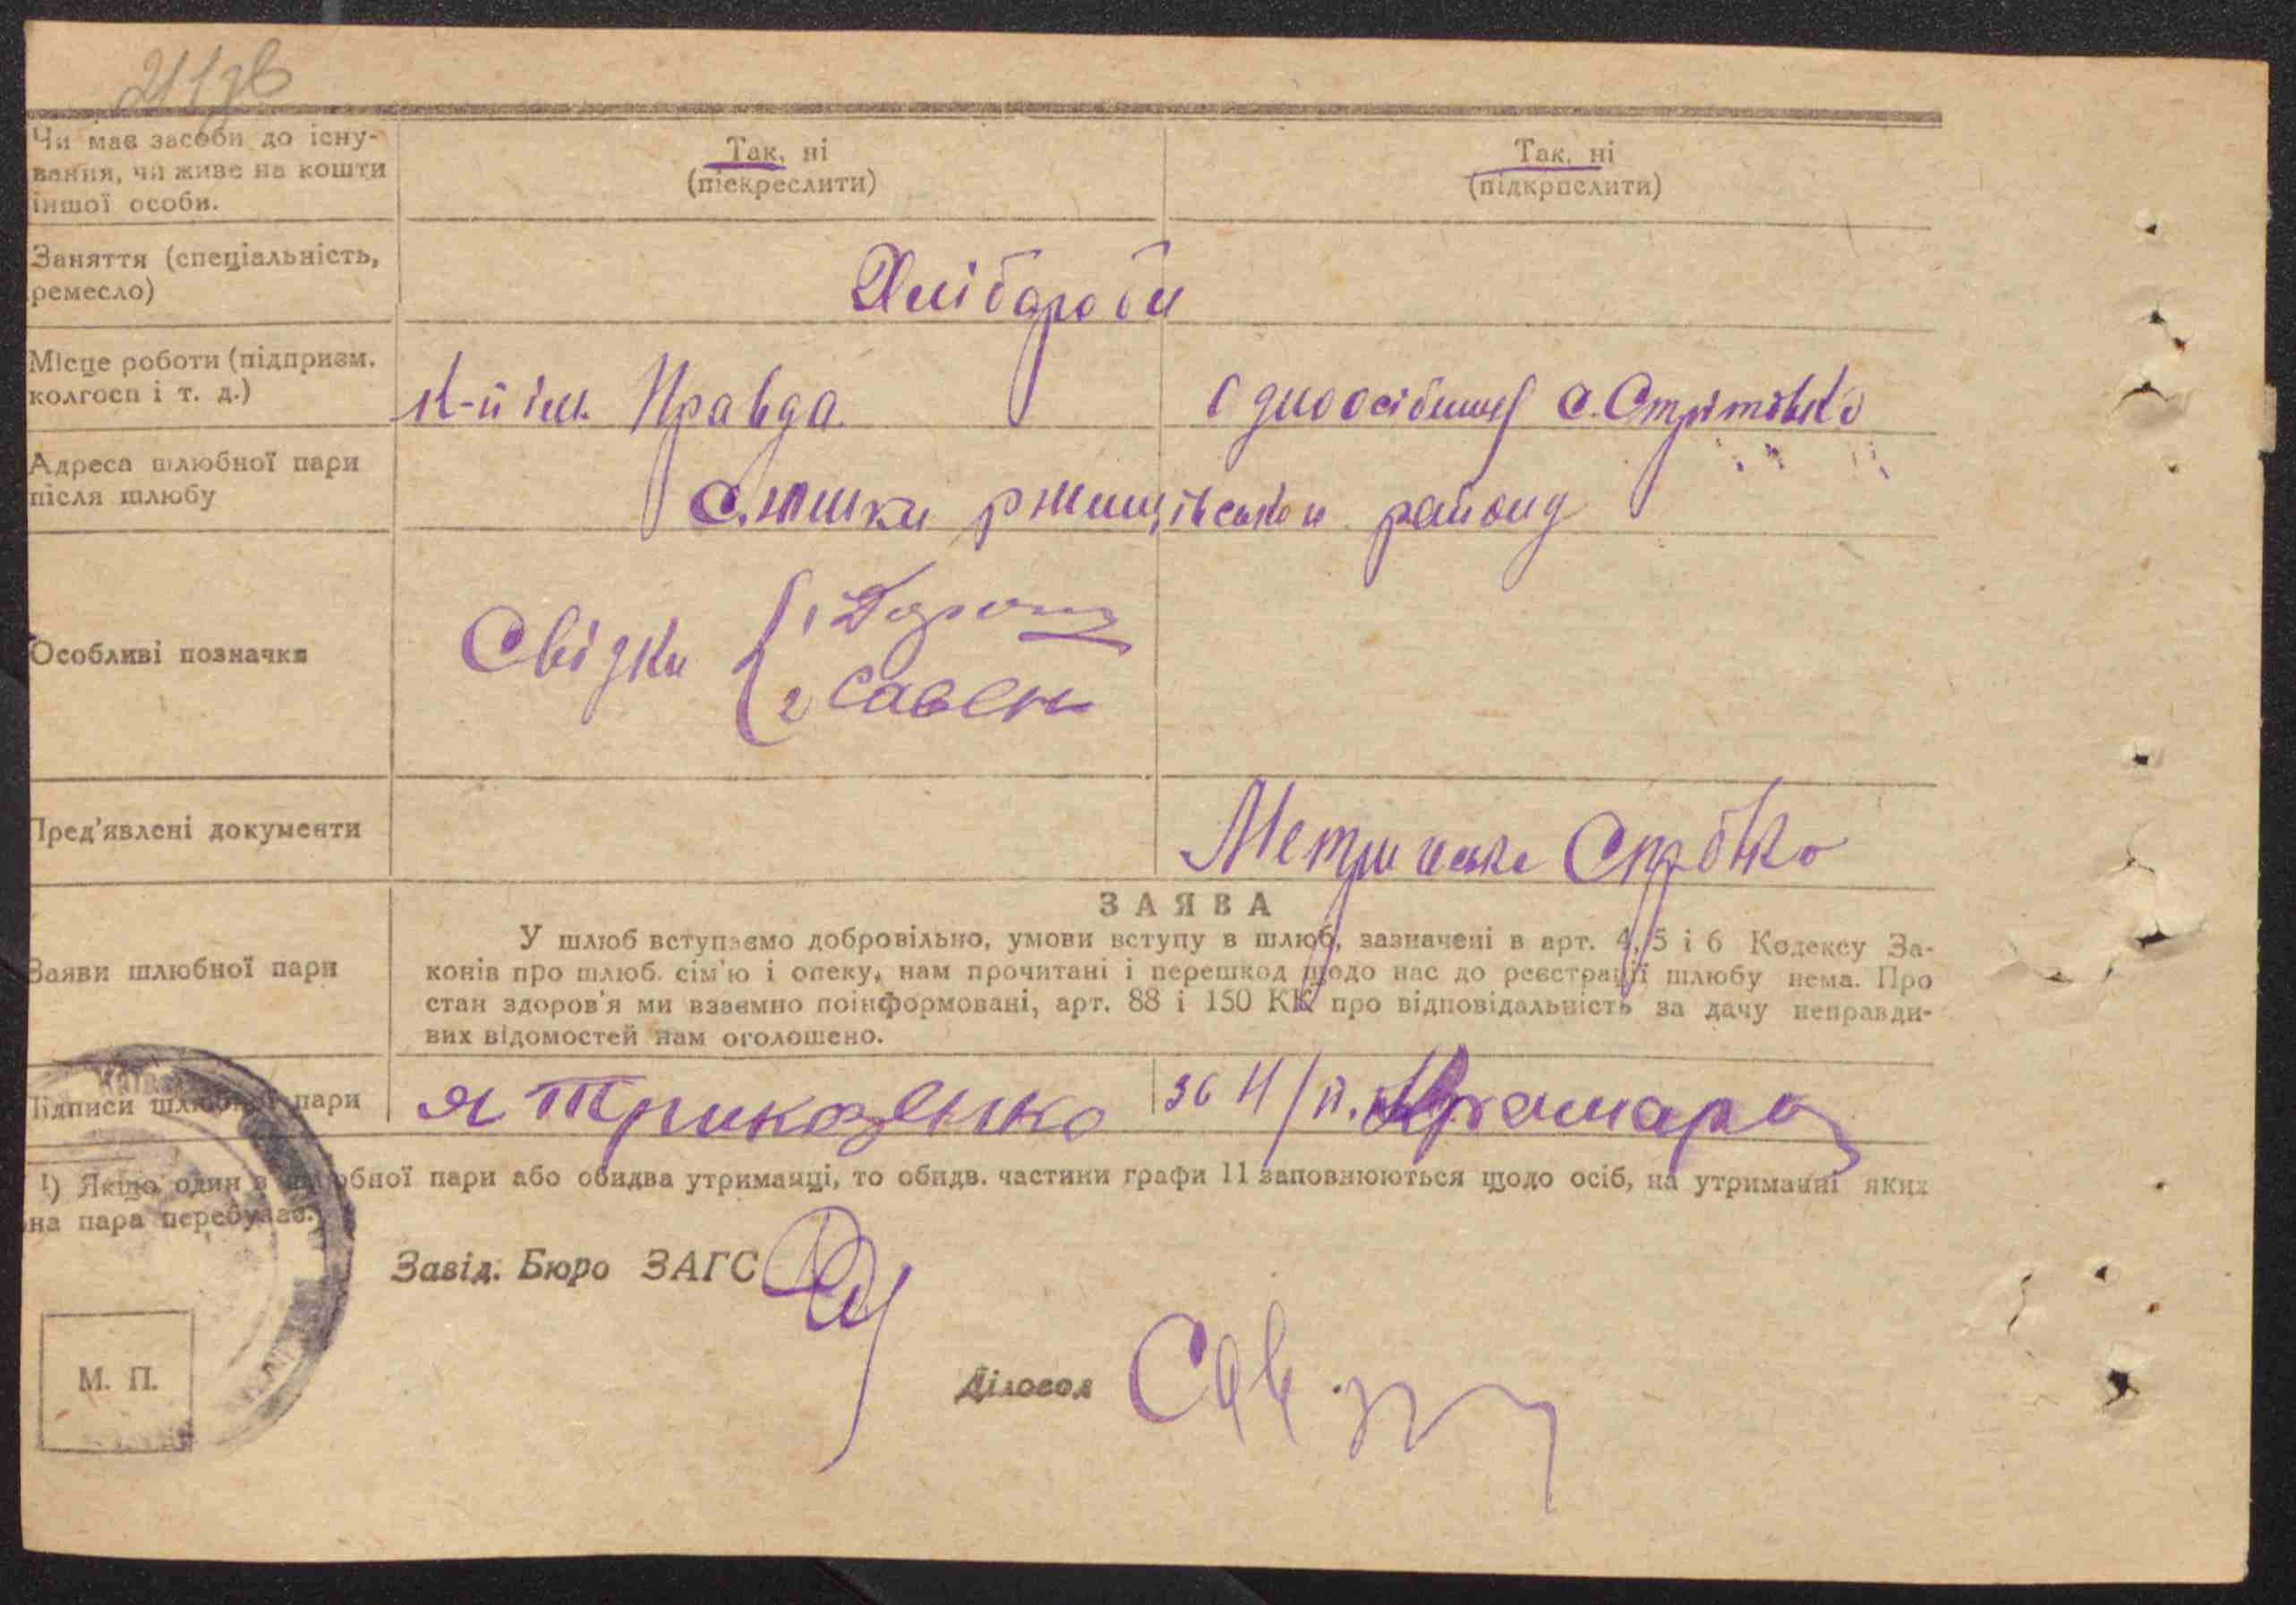 Чи має засоби до існу-
вання, чи живе на кошти
іншої особи.
Так, ні
(піекреслити)
Так, ні
(підкрпслити)
Заняття (спеціальність,
ремесло)
Хлібороби
Місце роботи (підприєм.
колгосп і т. д.)
Правда
одноосібниця с. Стрітівка
Адреса шлюбної пари
після шлюбу
с. Юшки ржищівського району
Особливі позначки
Свідки
1
2 Савен
Пред'явлені документи
Метрична
ЗАЯВА
Заяви шлюбної пари
У шлюб вступаємо добровільно, умови вступу в шлюб, зазначені в арт. 4, 5 і 6 Кодексу За-
конів про шлюб. сім'ю і опеку, нам прочитані і перешкод щодо нас до реєстрації шлюбу нема. Про
стан здоров'я ми взаємно поінформовані, арт. 88 і 150 КК про відповідальність за дачу неправди-
вих відомостей нам оголошено.
Підписи шлюбної пари
Крамар
1) Якщо один з шлюбної пари або обидва утриманці, то обидв. частини графи 11 заповнюються щодо осіб, на утриманні яких
на пара перебуває.
Завід. Бюро ЗАГС
Діловод
М. П.